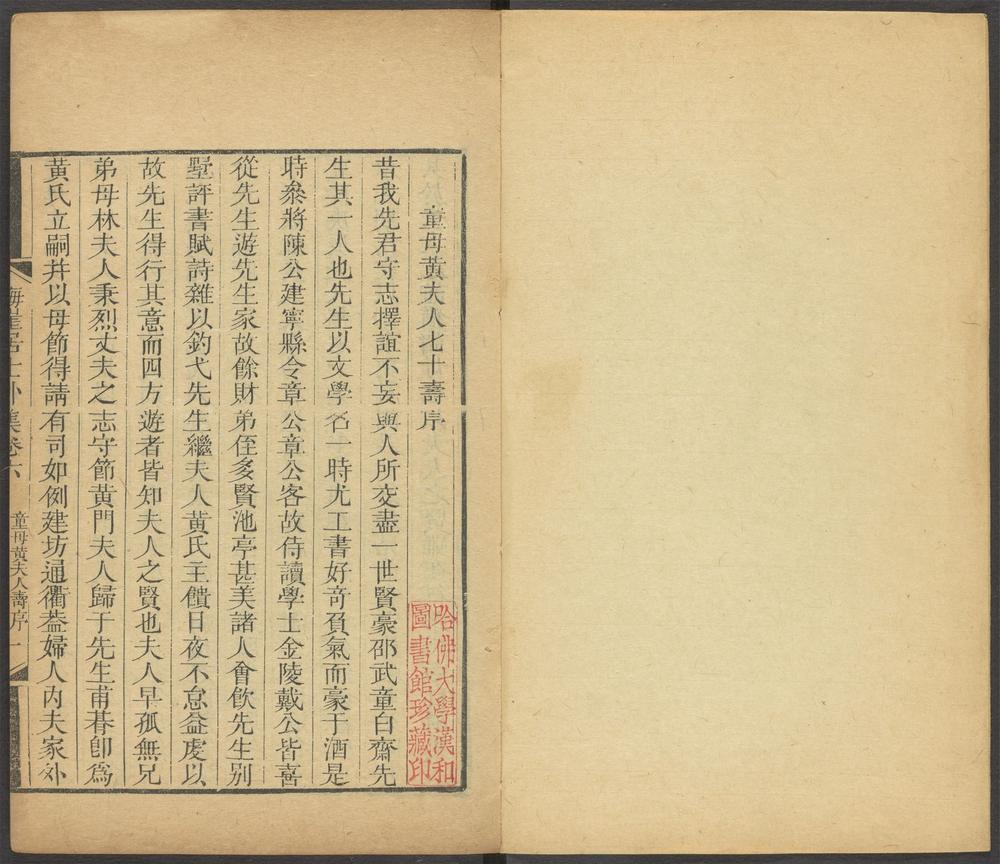 童母黃夫人七十壽序
昔我先君守志擇誼不妄與人所交盡一世賢豪邵武童白齋先
生其一人也先生以文學名一時尤工書好奇負氣而豪于酒是
時叅將陳公建寧縣令章公章公客故侍讀學士金陵戴公皆喜
從先生遊先生家故餘財弟侄多賢池亭甚美諸人會飲先生別
墅評書賦詩雜以釣弋先生繼夫人黃氏主饋日夜不怠益虔以
故先生得行其意而四方遊者皆知夫人之賢也夫人早孤無兄
弟母林夫人秉烈丈夫之志守節黃門夫人歸于先生甫朞卽爲
黃氏立嗣并以母節得請有司如例建坊通衢葢婦人内夫家外
海崖居士外集卷六
童母黃夫人壽序
一
哈佛大學漢和
圖書館珍藏印